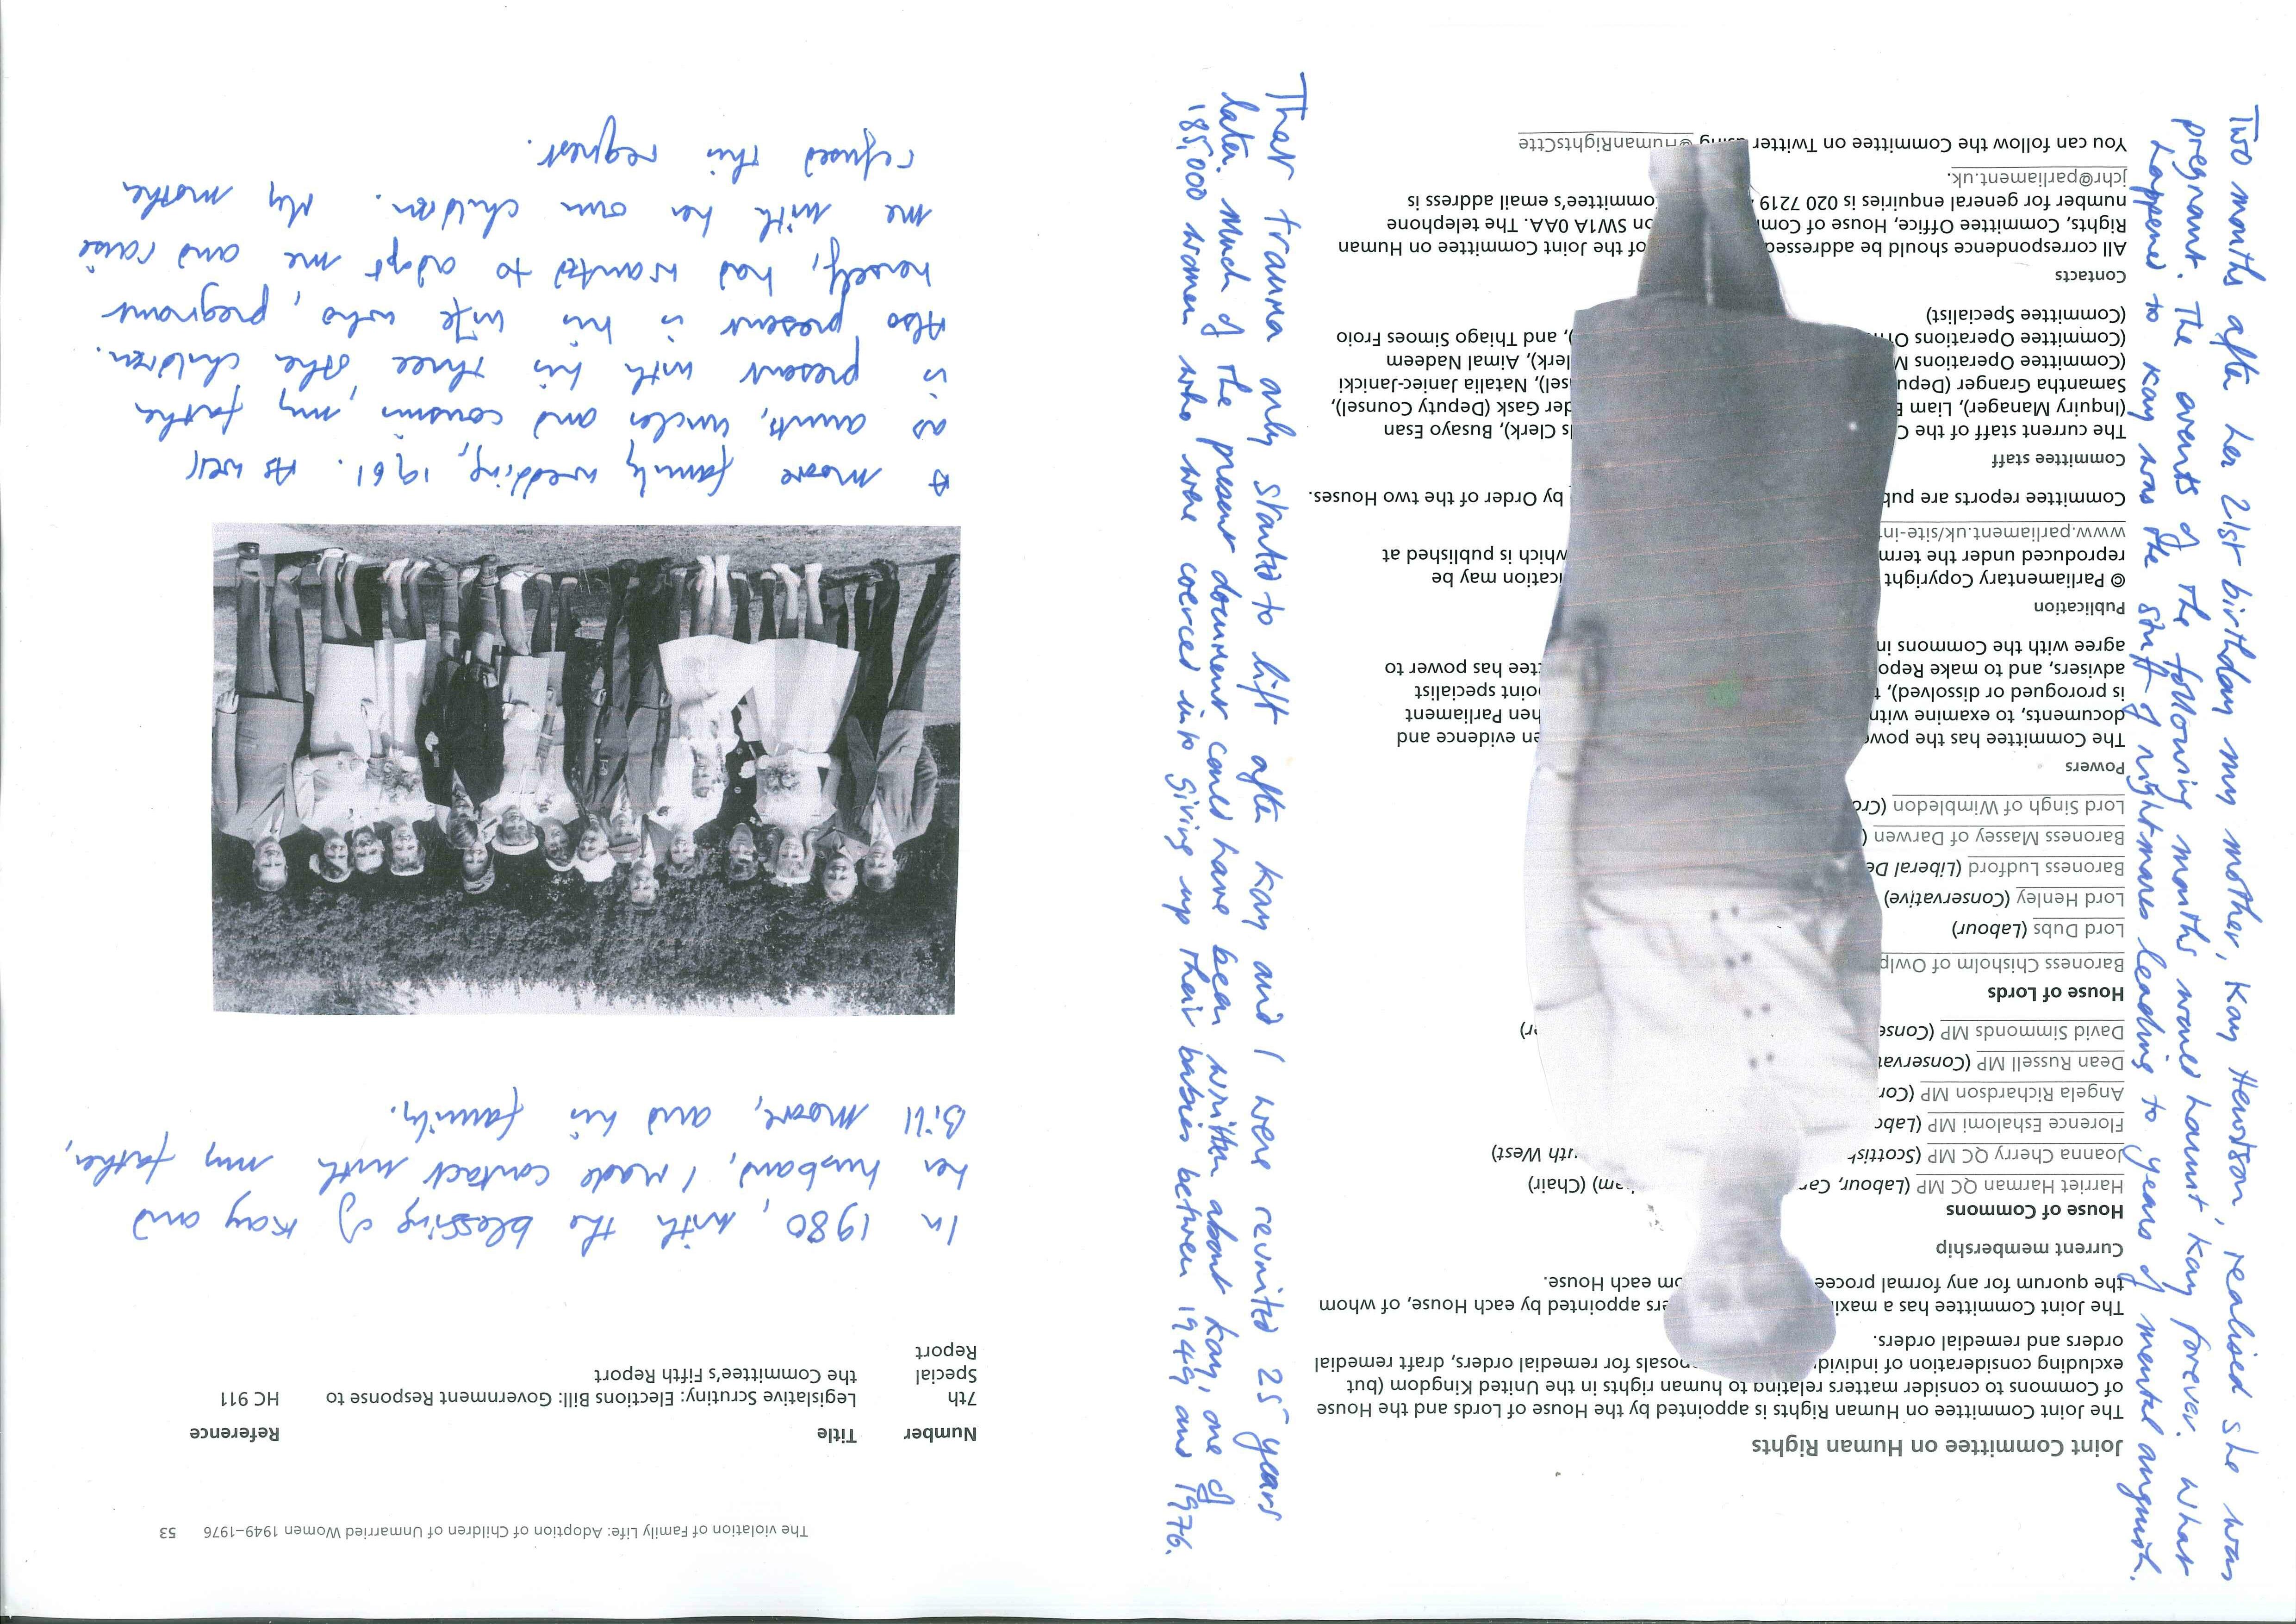 Two months after her 21st birthday my mother, Kay Hewitson, realised she was
pregnant. The events of the following months would haunt Kay forever. What
happened to Kay was the stuff of nightmares leading to years of mental anguish.
Joint Committee on Human Rights
The Joint Committee on Human Rights is appointed by the House of Lords and the House
of Commons to consider matters relating to human rights in the United Kingdom (but
excluding consideration of for remedial orders, draft remedial
orders and remedial orders.
The Joint Committee has a appointed by each House, of whom
the quorum for any formal each House.
Current membership
House of Commons
Harriet Harman QC MP (Labour, (Chair)
Joanna Cherry QC MP (Scottish West)
Florence Eshalomi MP
Angela Richardson MP
Dean Russell MP
David Simmonds MP
House of Lords
Baroness Chisholm of
Lord Dubs (Labour)
Lord Henley (Conservative)
Baroness Ludford (Liberal
Baroness Massey of Darwen
Lord Singh of Wimbledon
Powers
The Committee has the evidence and
documents, to examine Parliament
is prorogued or dissolved), specialist
advisers, and to make has power to
agree with the Commons in
Publication
© Parliamentary Copyright may be
reproduced under the which is published at
www.parliament.uk/site-in
Committee reports are by Order of the two Houses.
Committee staff
The current staff of the Clerk), Busayo Esan
(Inquiry Manager), Liam Gask (Deputy Counsel),
Samantha Granger Natalia Janiec-Janicki
(Committee Operations Aimal Nadeem
(Committee Operations and Thiago Simoes Froio
(Committee Specialist)
Contacts
All correspondence should be addressed of the Joint Committee on Human
Rights, Committee Office, House of SW1A 0AA. The telephone
number for general enquiries is 020 7219 Committee's email address is
jchr@parliament.uk.
You can follow the Committee on Twitter using @HumanRightsCttee
That trauma only started to lift after Kay and I were reunited 25 years
later. Much of the present document could have been written about Kay, one of
185,000 women who were coerced into giving up their babies between 1949 and 1976.
The violation of Family Life: Adoption of Children of Unmarried Women 1949–1976 53
Number Title Reference
7th Legislative Scrutiny: Elections Bill: Government Response to HC 911
Special the Committee's Fifth Report
Report
In 1980, with the blessing of Kay and
her husband, I made contact with my father,
Bill Moore, and his family.
A Moore family wedding, 1961. As well
as aunts, uncles and cousins, my father
is present with his three other children.
Also present is his wife who, pregnant
herself, had wanted to adopt me and raise
me with her own children. My mother
refused this request.